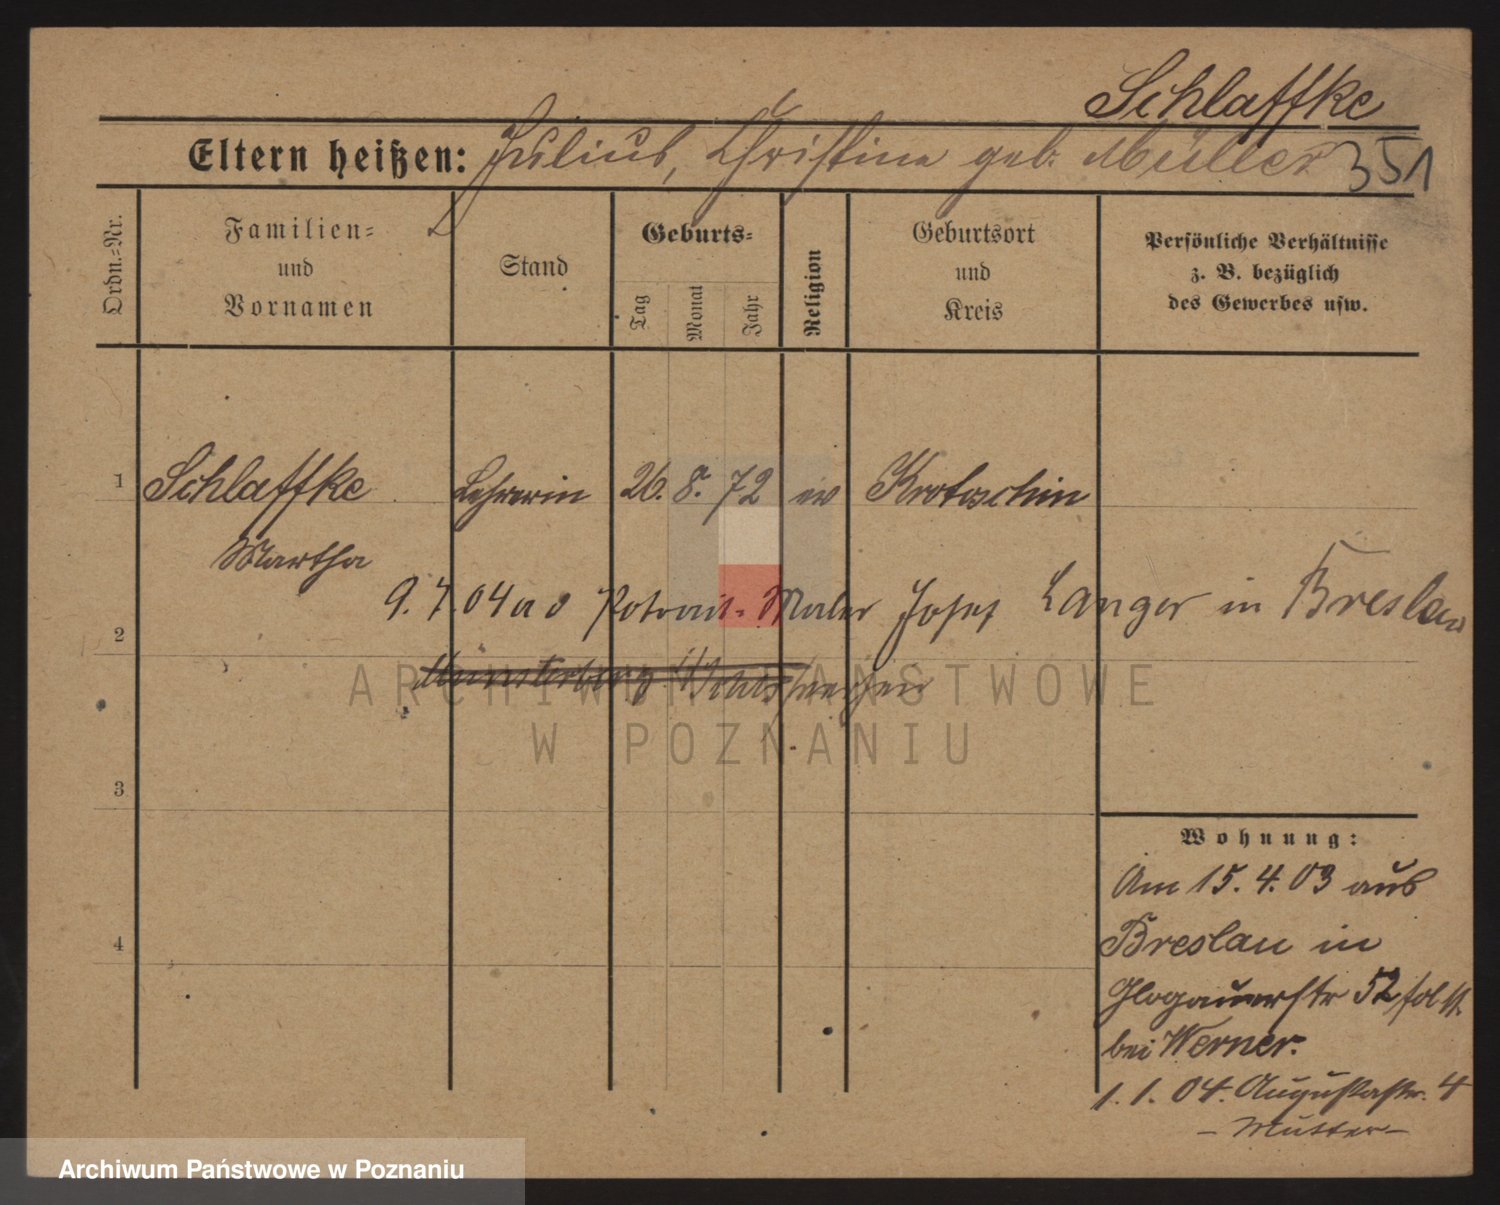 Schlaffke
Eltern heißen: Julius, Christine geb. Müller 351
Ordn.=Nr.
Familien=
und
Vornamen
Stand
Geburts=
Tag
Monat
Jahr
Religion
Geburtsort
und
Kreis
Persönliche Verhältnisse
z. B. bezüglich
des Gewerbes usw.
1 Schlaffke Lehrerin 26. 8. 72 ev Krotoschin
Martha
9. 7. 04 Potrait-Maler Josef Langer in Breslau
2
Münsterberg
ARCHIWUM PAŃSTWOWE
W POZNANIU
3
Wohnung:
Am 15. 4. 03 aus
Breslau in
4
Glogauerstr 52
bei Werner.
1. 1. 04. Augustastr. 4
– Mutter –
Archiwum Państwowe w Poznaniu